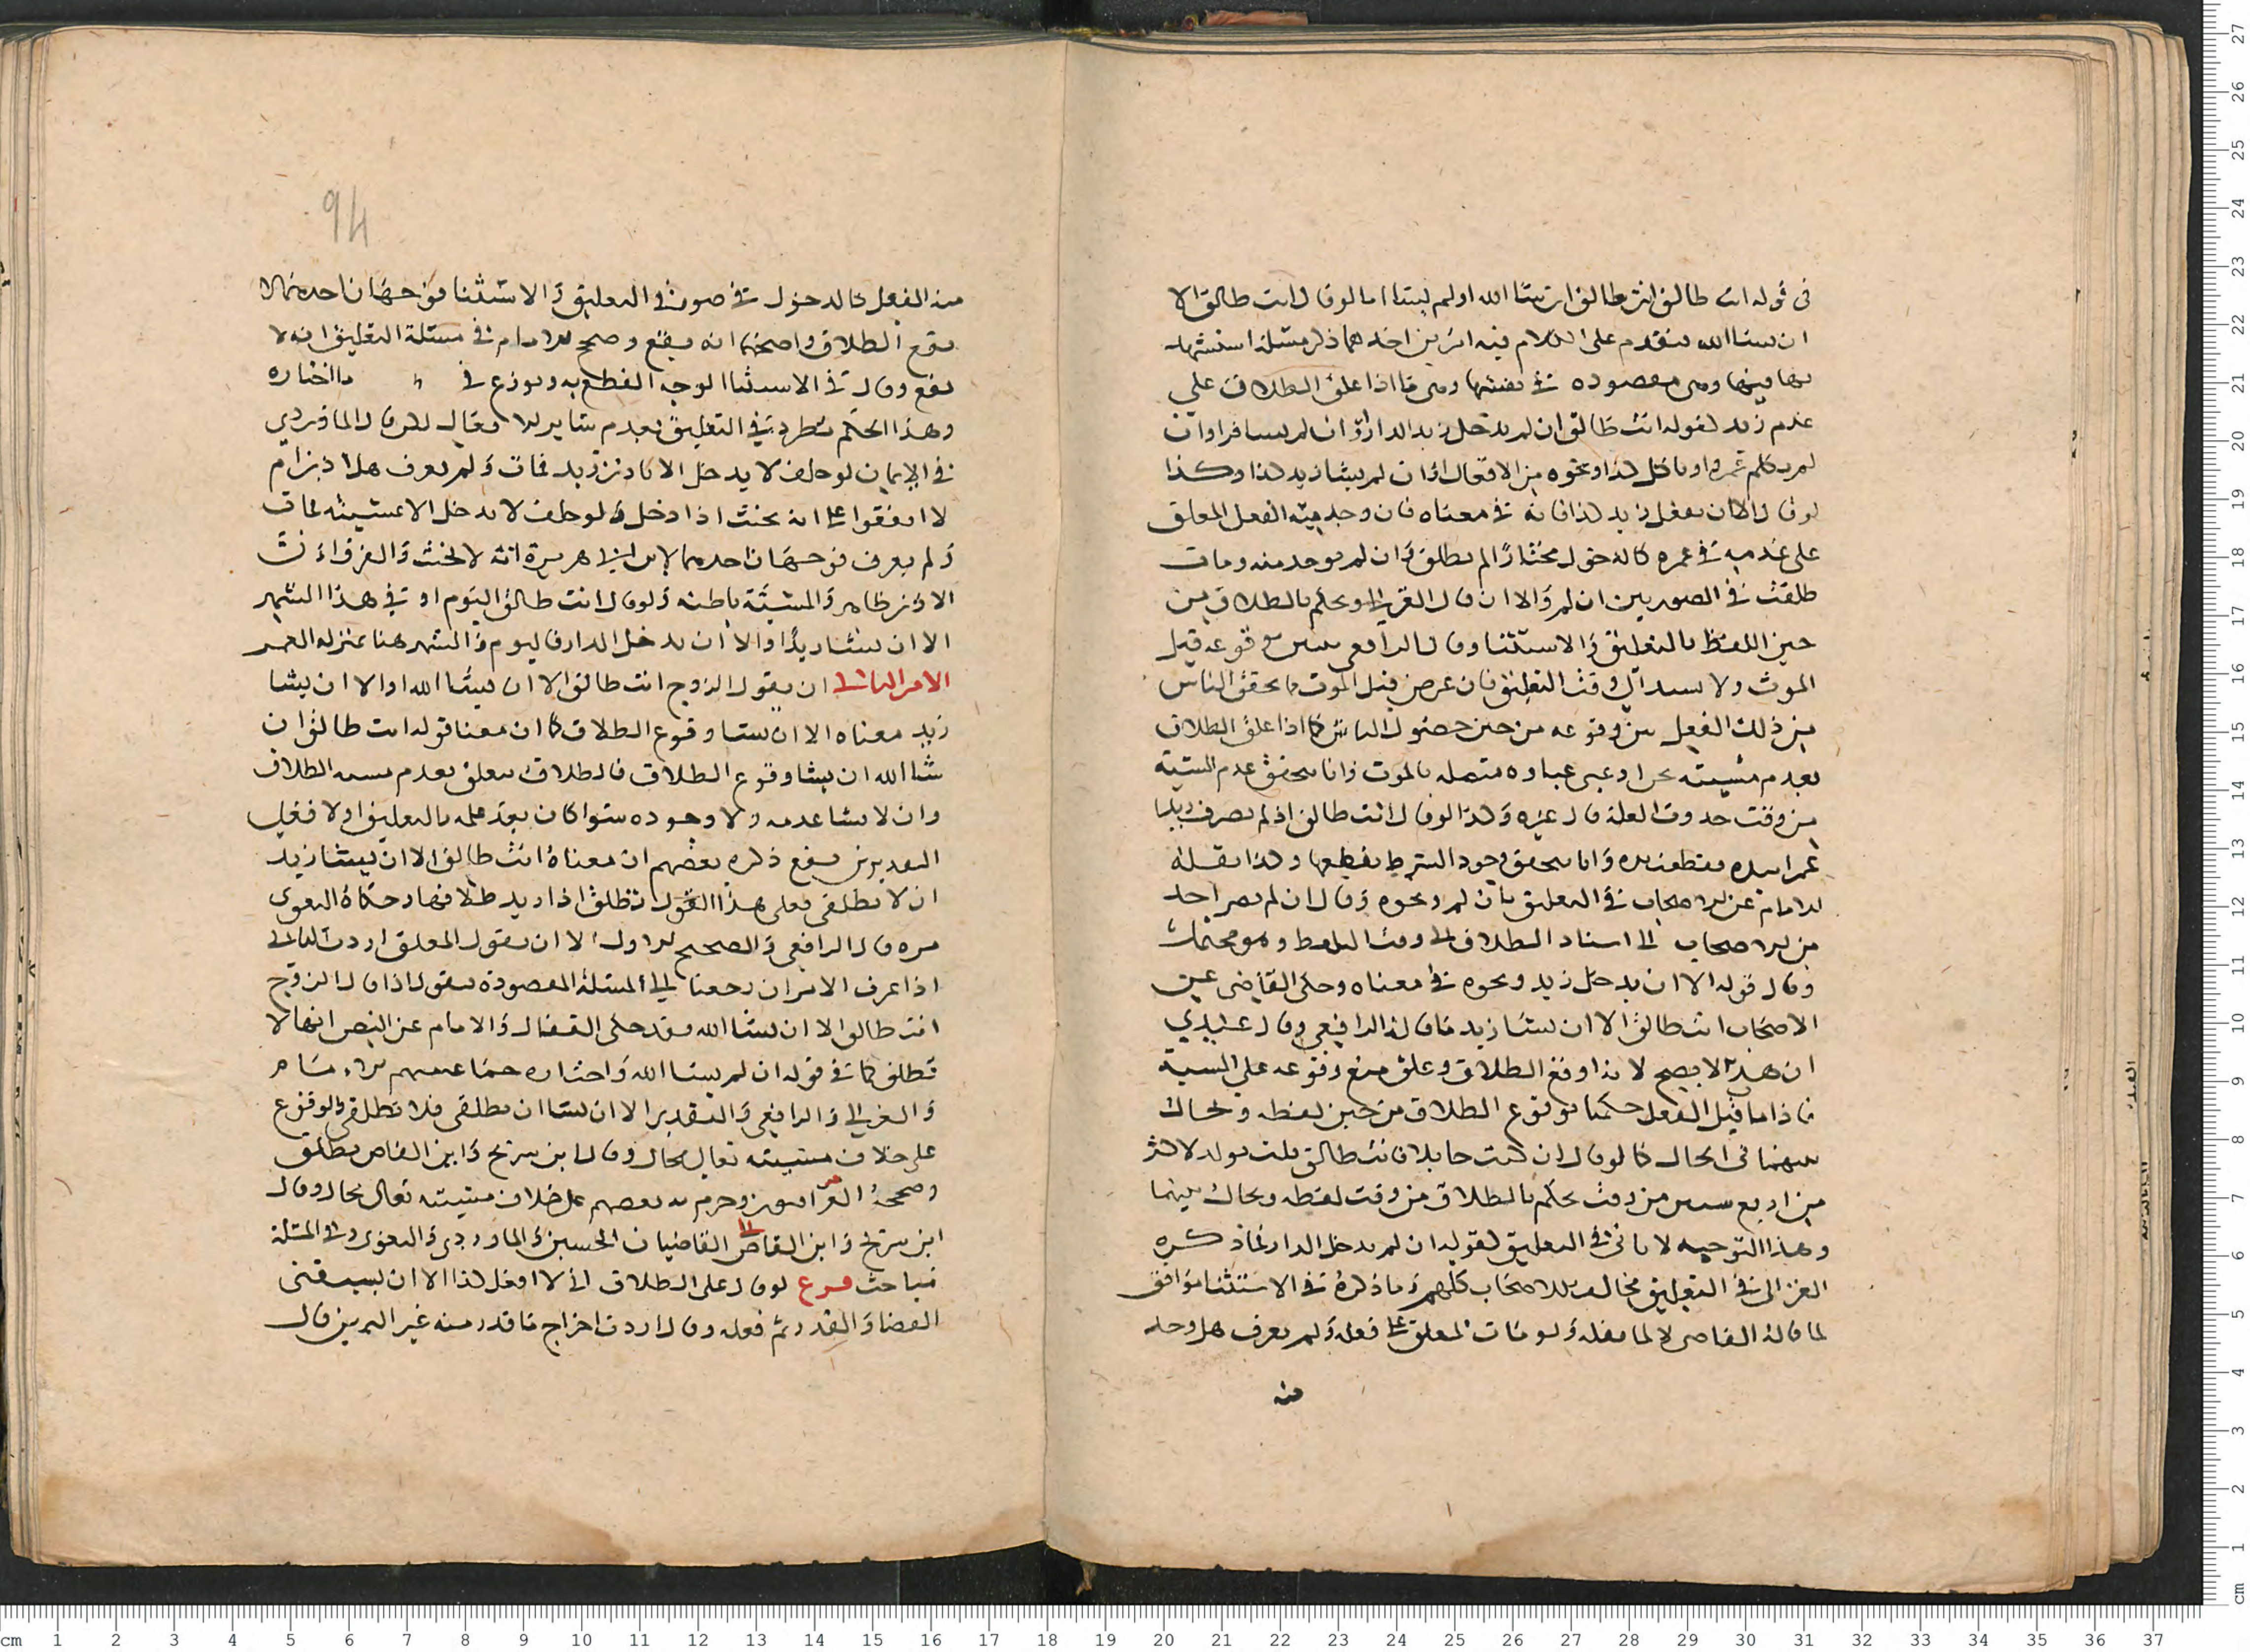 في قوله انت طالق انت طالق ان شا الله او لم يشا اما لو قال انت طالق الا
ان يشا الله فنقدم على الكلام فيه امرين احدهما ذكر مسئلة استشهد
بها فيها وهي مقصوده في نفسها وهي ما اذا علق الطلاق على
عدم زيد كقوله انت طالق ان لم يدخل زيد الدار او ان لم يسافر او ان
لم يكلم عمرا او ياكل كذا ونحوه من الافعال او ان لم يشا زيد كذا وكذا
لو قال الا ان يفعل زيد كذا فانه في معناه فان وجد منه الفعل المعلق
على عدمه في عمره كالدخول مختارا لم تطلق وان لم يوجد منه ومات
طلقت في الصورتين ان لم والا ان قال الغزالي ويحكم بالطلاق من
حين اللفظ بالتعليق والاستثنا وقال الرافعي يتبين وقوعه قبيل
الموت ولا يسند الى وقت التعليق فان عرض قبل الموت ما يحقق الياس
من ذلك الفعل تبين وقوعه من حين حصول الياس كما اذا علق الطلاق
بعدم مشيته متصله بالموت فانا نتحقق عدم المشية
من وقت حدوث العلة قال غيره وكذا لو قال انت طالق ان لم يضرف زيد
عمرا وانا نتحقق وجود الشرط بقطعها وكذا نقله
الامام عن الاصحاب في التعليق بان لم ونحوه وقال ان لم يصر احد
من الاصحاب الى اسناد الطلاق الى وقت اللفظ وهو محتمل
وقال قوله الا ان يدخل زيد ونحوه في معناه وحكى القاضي عن
الاصحاب انت طالق الا ان يشا زيد ما قاله الرافعي وقال عندي
ان هذا لا يصح لانه اوقع الطلاق وعلق منع وقوعه على المشية
فاذا ما قبل الفعل حكمنا بوقوع الطلاق من حين لفظه ويحال
بينهما في الحال كما لو قال ان كنت حايلا فانت طالق فلت بولد لاكثر
من اربع سنين من وقت يحكم بالطلاق من وقت لفظه ويحال بينهما
وهذا التوجيه لا ياتي في التعليق كقوله ان لم يدخل الدار فما ذكره
الغزالي في التعليق مخالف للاصحاب كلهم وما ذكره في الاستثنا موافق
لما قاله القاضي لا لما نقله ولو مات المعلق على فعله ولم يعرف هل وجد
منه
94
منه الفعل كالدخول في صورتي التعليق والاستثنا فوجهان احدهما لا
يقع الطلاق واصحهما انه يقع وصحح الامام في مسئلة التعليق انه لا
يقع وقال في الاستثنا الوجه القطع به ونوزع في ما اختاره
وهذا الحكم مطرد في التعليق بعدم
في الايمان لو حلف لا يدخل الا باذن زيد فمات ولم يعرف هل اذن ام
لا اتفقوا على انه يحنث اذا دخل ولو حلف لا يدخل الا بمشيئته فمات
ولم يعرف فوجهان احدهما لابن ابي هريرة انه لا يحنث والفرق ان
الاذن ظاهر والمشيئة باطنه ولو قال انت طالق اليوم او في هذا الشهر
الا ان يشا زيد او الا ان يدخل الدار فاليوم والشهر هنا بمنزلة العمر
الامر الثاني ان يقول الزوج انت طالق الا ان يشا الله او الا ان يشا
زيد معناه الا ان يشا وقوع الطلاق كما ان معنا قوله انت طالق ان
شا الله ان يشا وقوع الطلاق فالطلاق معلق بعدم مشيه الطلاق
وان لا يشا عدمه ولا وجوده سوا كان بعد علمه بالتعليق او لا فعلى
التقديرين يقع ذكر بعضهم ان معناه انت طالق الا ان يشا زيد
ان لا تطلقي فعلى هذا القول تطلق اذا زيد طلاقها وحكاه البغوي
مره قال الرافعي والصحيح الاول الا ان يقول المعلق اردت الثاني
اذا عرف الامران رجعنا الى المسئلة المقصودة فنقول اذا قال الزوج
انت طالق الا ان يشا الله فقد حكى القفال والامام عن النص انها لا
تطلق كما في قوله ان لم يشا الله واختاره جماعة منهم
والغزالي والرافعي والتقدير الا ان يشا ان تطلقي فلا تطلقي والوقوع
على خلاف مشيئته تعالى محال وقال ابن سريج وابن القاص تطلق
وصححه وجزم به بعضهم على خلاف مشيته تعالى محال وقال
ابن سريج وابن القاص القاضيان الحسين والماوردي والبغوي وفي المسئلة
مباحث فرع لو قال على الطلاق اني لا افعل كذا الا ان يسبقني
القضا والقدر ثم فعله وقال اردت اخراج ما قدر منه غير اليمين قال